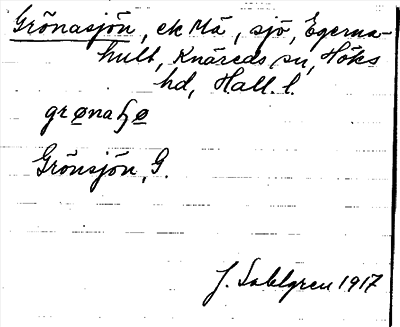 Grönasjön, ek Mä, sjö, Egerna-
hult, Knäreds sn, Höks
hd, Hall. l.
grønaɧø
Grönsjön, G.
J. Sahlgren 1917